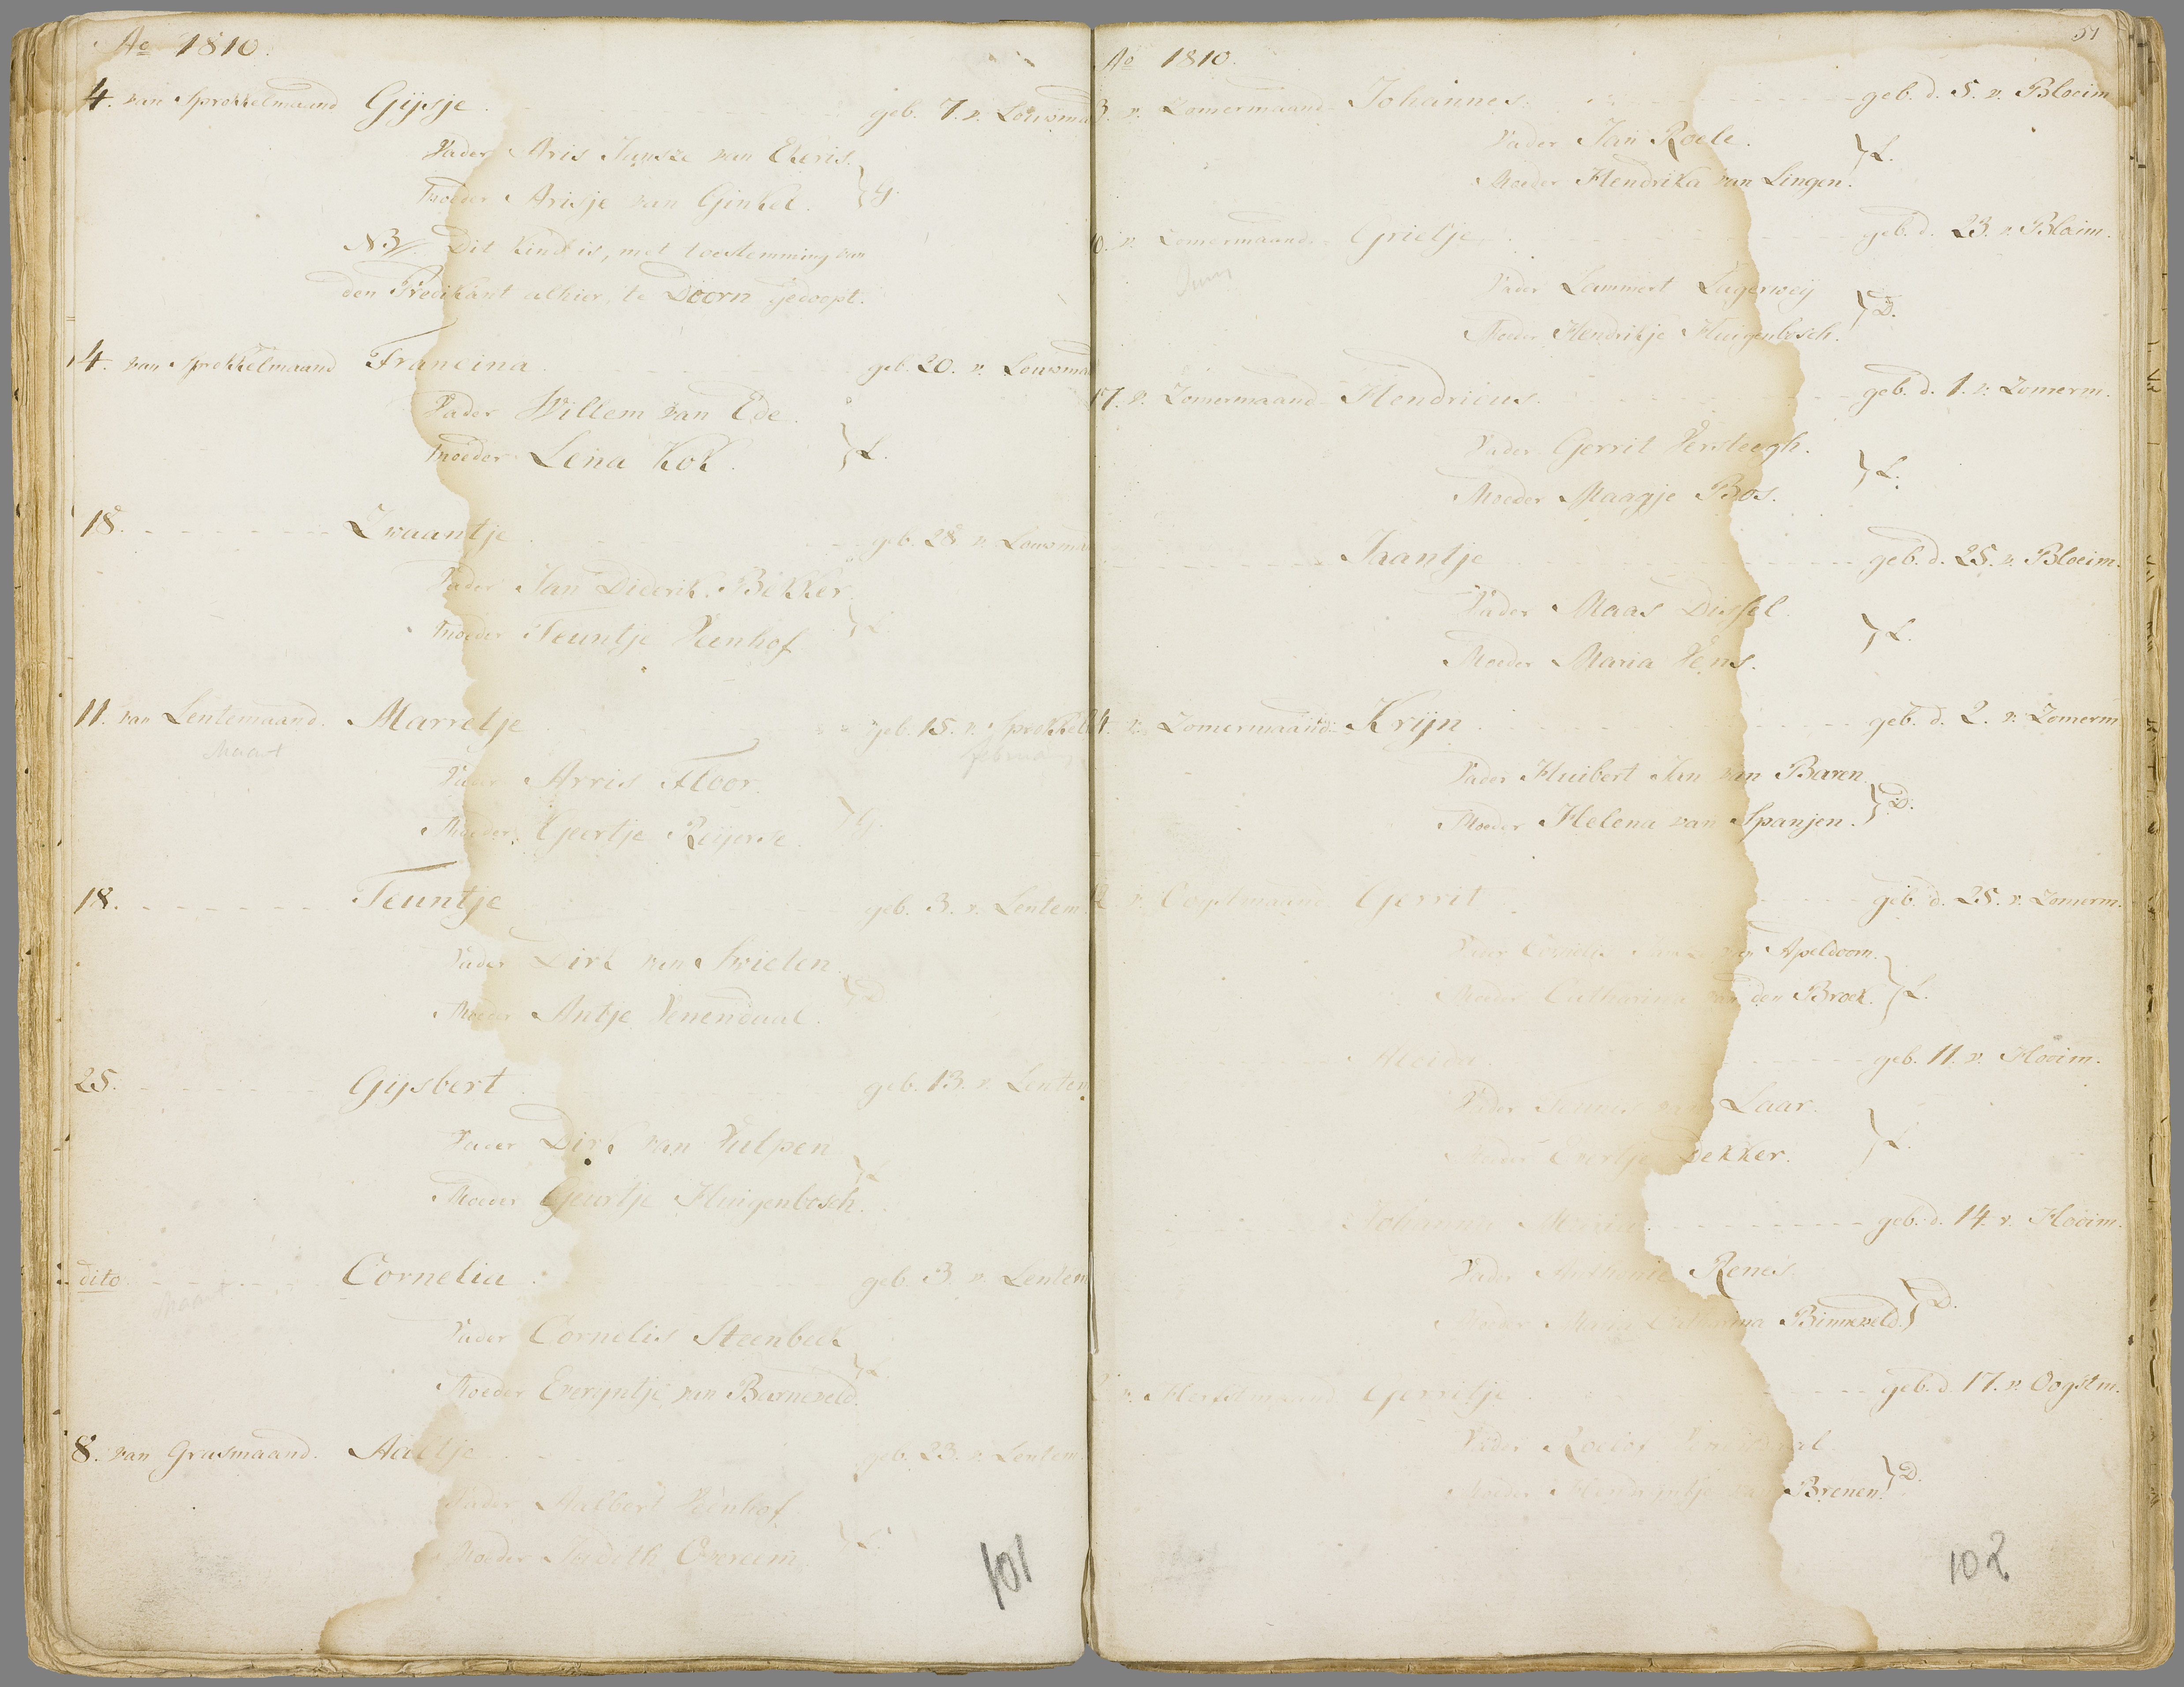 Ao 1810.
4. van Sprokkelmaand Gijsje. geb. 7. v. Louwma
Vader Aris Jansze van Ekeris.
Moeder Arisje van Ginkel. } G.
NB/. Dit kind is, met toestemming van
den Predikant alhier, te Doorn gedoopt.
4. van Sprokkelmaand Francina. geb. 20. v. Louwma
Vader Willem van Ede.
Moeder Lena Kok. } L.
18. Zwaantje geb. 28 v. Louwma
Vader Jan Diedrik Bekker.
Moeder Teuntje Veenhof. } L
11. van Lentemaand. Marretje geb. 15. v. Sprokkel
Maart februarij
Vader Arris Floor.
Moeder Geertje Reijerse. } G.
18. Teuntje geb. 3. v. Lentem.
Vader Dirk van Swieten
Moeder Antje Venendaal. } D
25. Gijsbert geb. 13. v. Lentem
Vader Dirk van Vulpen
Moeder Geurtje Huigenbosch. } L
dito Cornelia geb. 3. v. Lentem
Maart
Vader Cornelis Steenbeek
Moeder Everijntje van Barneveld. } L
8. van Grasmaand. Aaltje geb. 23. v. Lentem.
Vader Aalbert Veenhof
Moeder Judith Overeem. } L.
101
51
Ao 1810.
3. v. Zomermaand Johannes. geb. d. 5. v. Bloeim
Vader Jan Roele.
Moeder Hendrika van Lingen. } L.
10. v. Zomermaand Grietje geb. d. 23. v. Bloeim.
Juny
Vader Lammert Lagerweij
Moeder Hendrikje Huigenbosch. } D.
17. v. Zomermaand Hendricus. geb. d. 1. v. Zomerm.
Vader Gerrit Versteegh.
Moeder Maagje Bos. } L.
Jaantje geb. d. 25. v. Bloeim.
Vader Maas Dissel.
Moeder Maria Vens. } L.
24. v. Zomermaand Krijn geb. d. 2. v. Zomerm
Vader Huibert Jan van Baren
Moeder Helena van Spanjen. } D.
12 v. Oogstmaand Gerrit geb. d. 25. v. Zomerm.
Vader Cornelis van Apeldoorn.
Moeder Catharina van den Broek. } L.
geb. 11. v. Hooim.
Vader Teunis van Laar.
Moeder Evertje Dekker. } L.
Johanna Maria geb. d. 14 v. Hooim.
Vader Anthonie Renes.
Moeder Maria Catharina Binneveld. } D.
2 v. Herfstmaand Gerritje geb. d. 17. v. Oogstm.
Vader Roelof
Moeder Hendrijntje van Brenen. } D.
102